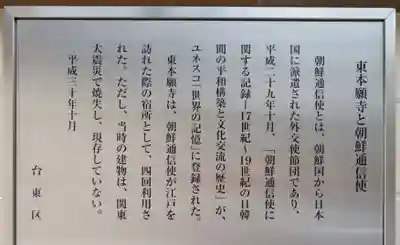 東本願寺と朝鮮通信使
朝鮮通信使とは、朝鮮国から日本
国に派遣された外交使節団であり、
平成二十九年十月、「朝鮮通信使に
関する記録―17世紀～19世紀の日韓
間の平和構築と文化交流の歴史」が、
ユネスコ「世界の記憶」に登録された。
東本願寺は、朝鮮通信使が江戸を
訪れた際の宿所として、四回利用さ
れた。ただし、当時の建物は、関東
大震災で焼失し、現存していない。
平成三十年十月
台東区